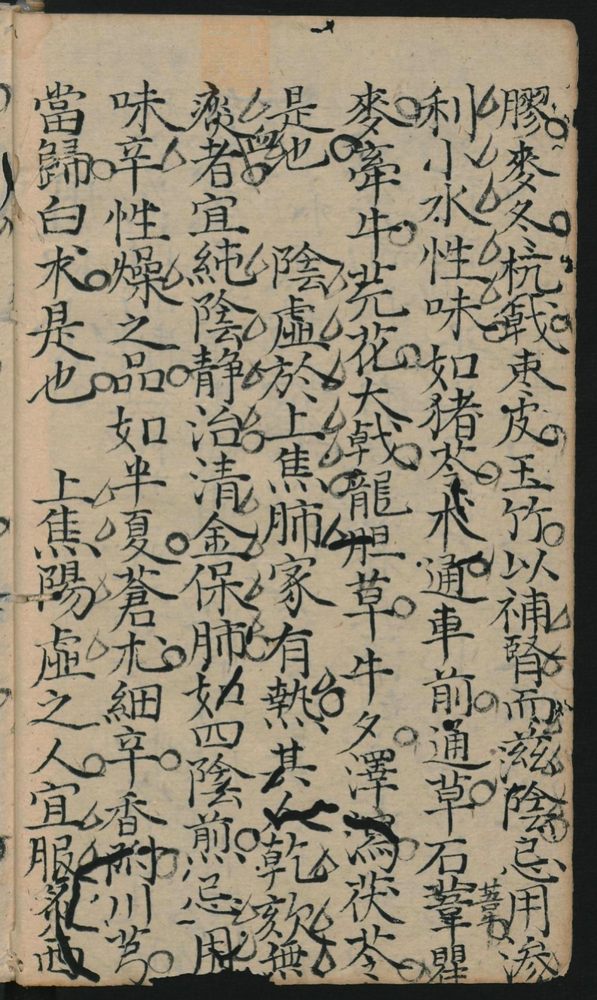 膠麥冬杭戟棗皮玉竹以補腎而滋陰忌用滲
利小水性味如猪苓木通車前通草石葦瞿
麥牽牛芫花大戟龍胆草牛夕澤瀉茯苓
是也 陰虛於上焦肺家有熱其人乾欬無
痰者宜純陰静治清金保肺如四陰煎忌用
味辛性燥之品如半夏蒼朮細辛香附川芎
當歸白朮是也 上焦陽虛之人宜服